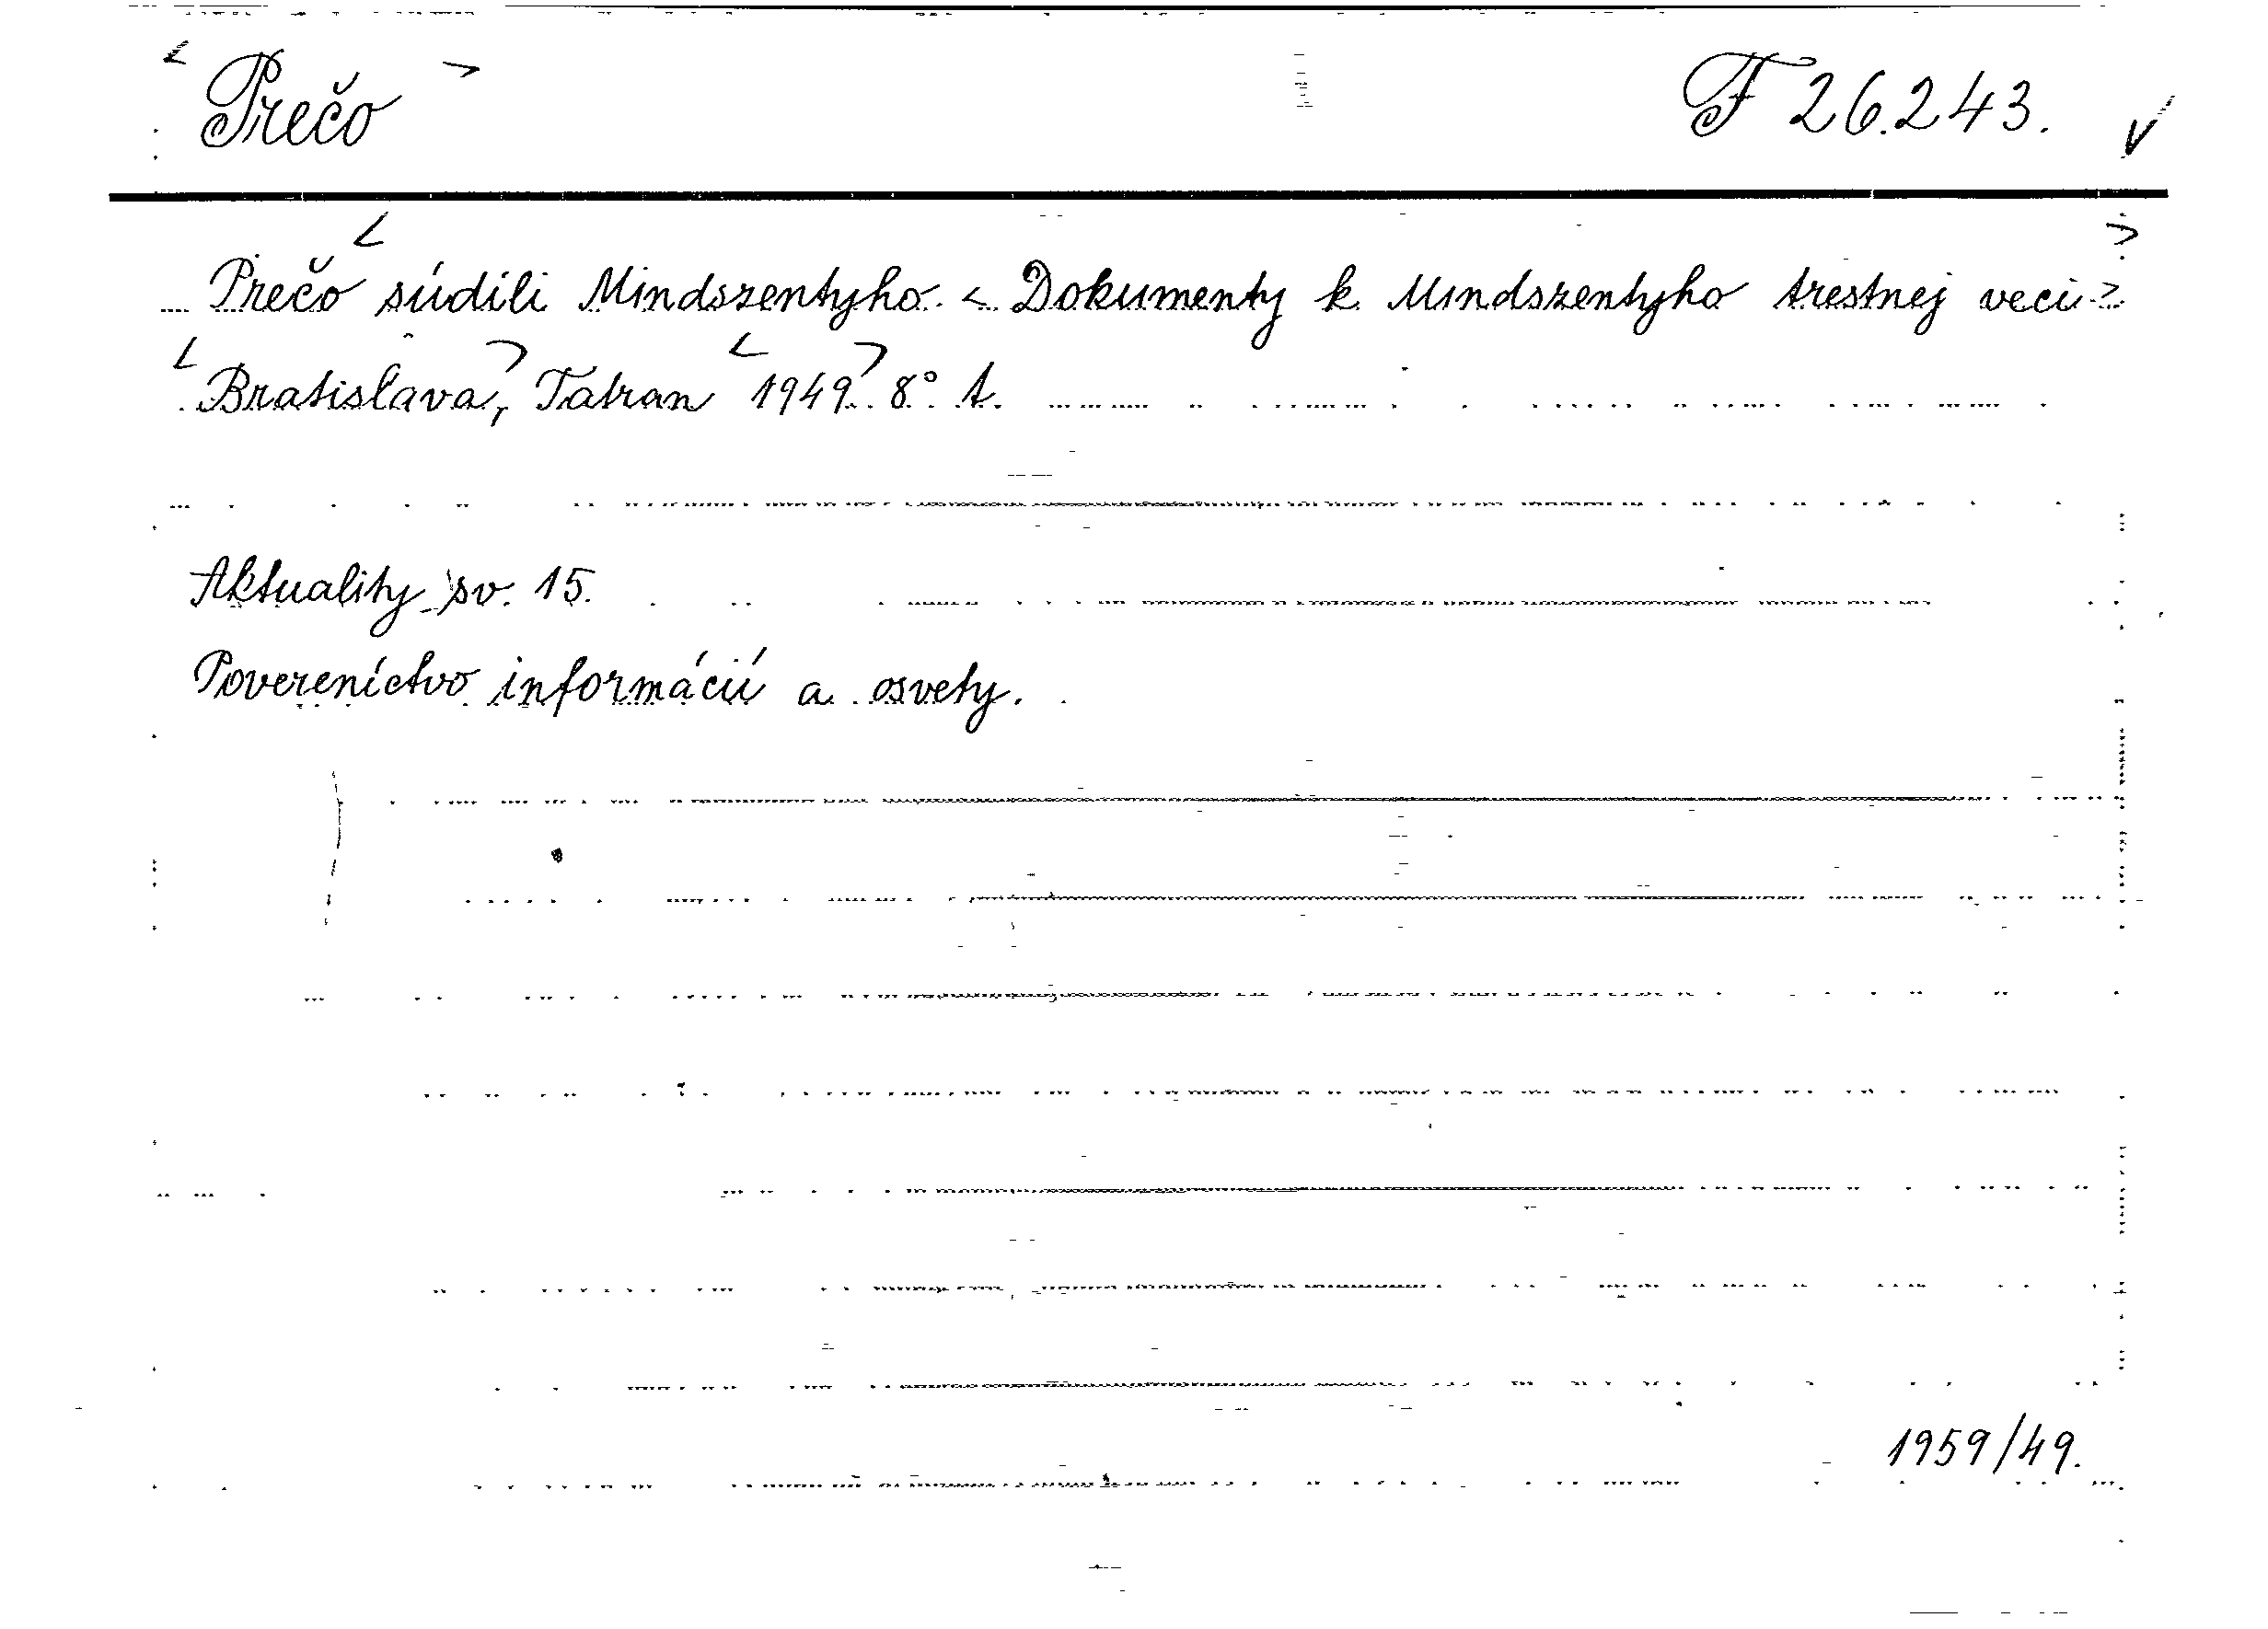 < Prečo > F 26.243. √
Prečo < súdili Mindszentyho. < Dokumenty k Mindszentyho trestnej veci >. >
< Bratislava, > Tatran < 1949. > 8° t.
Aktuality sv. 15.
Povereníctvo informácií a osvety.
1959/49.